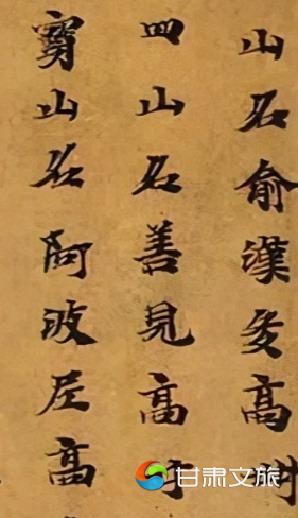 山名俞漢多高
四山名善見高
寶山名阿波尼高
甘肃文旅